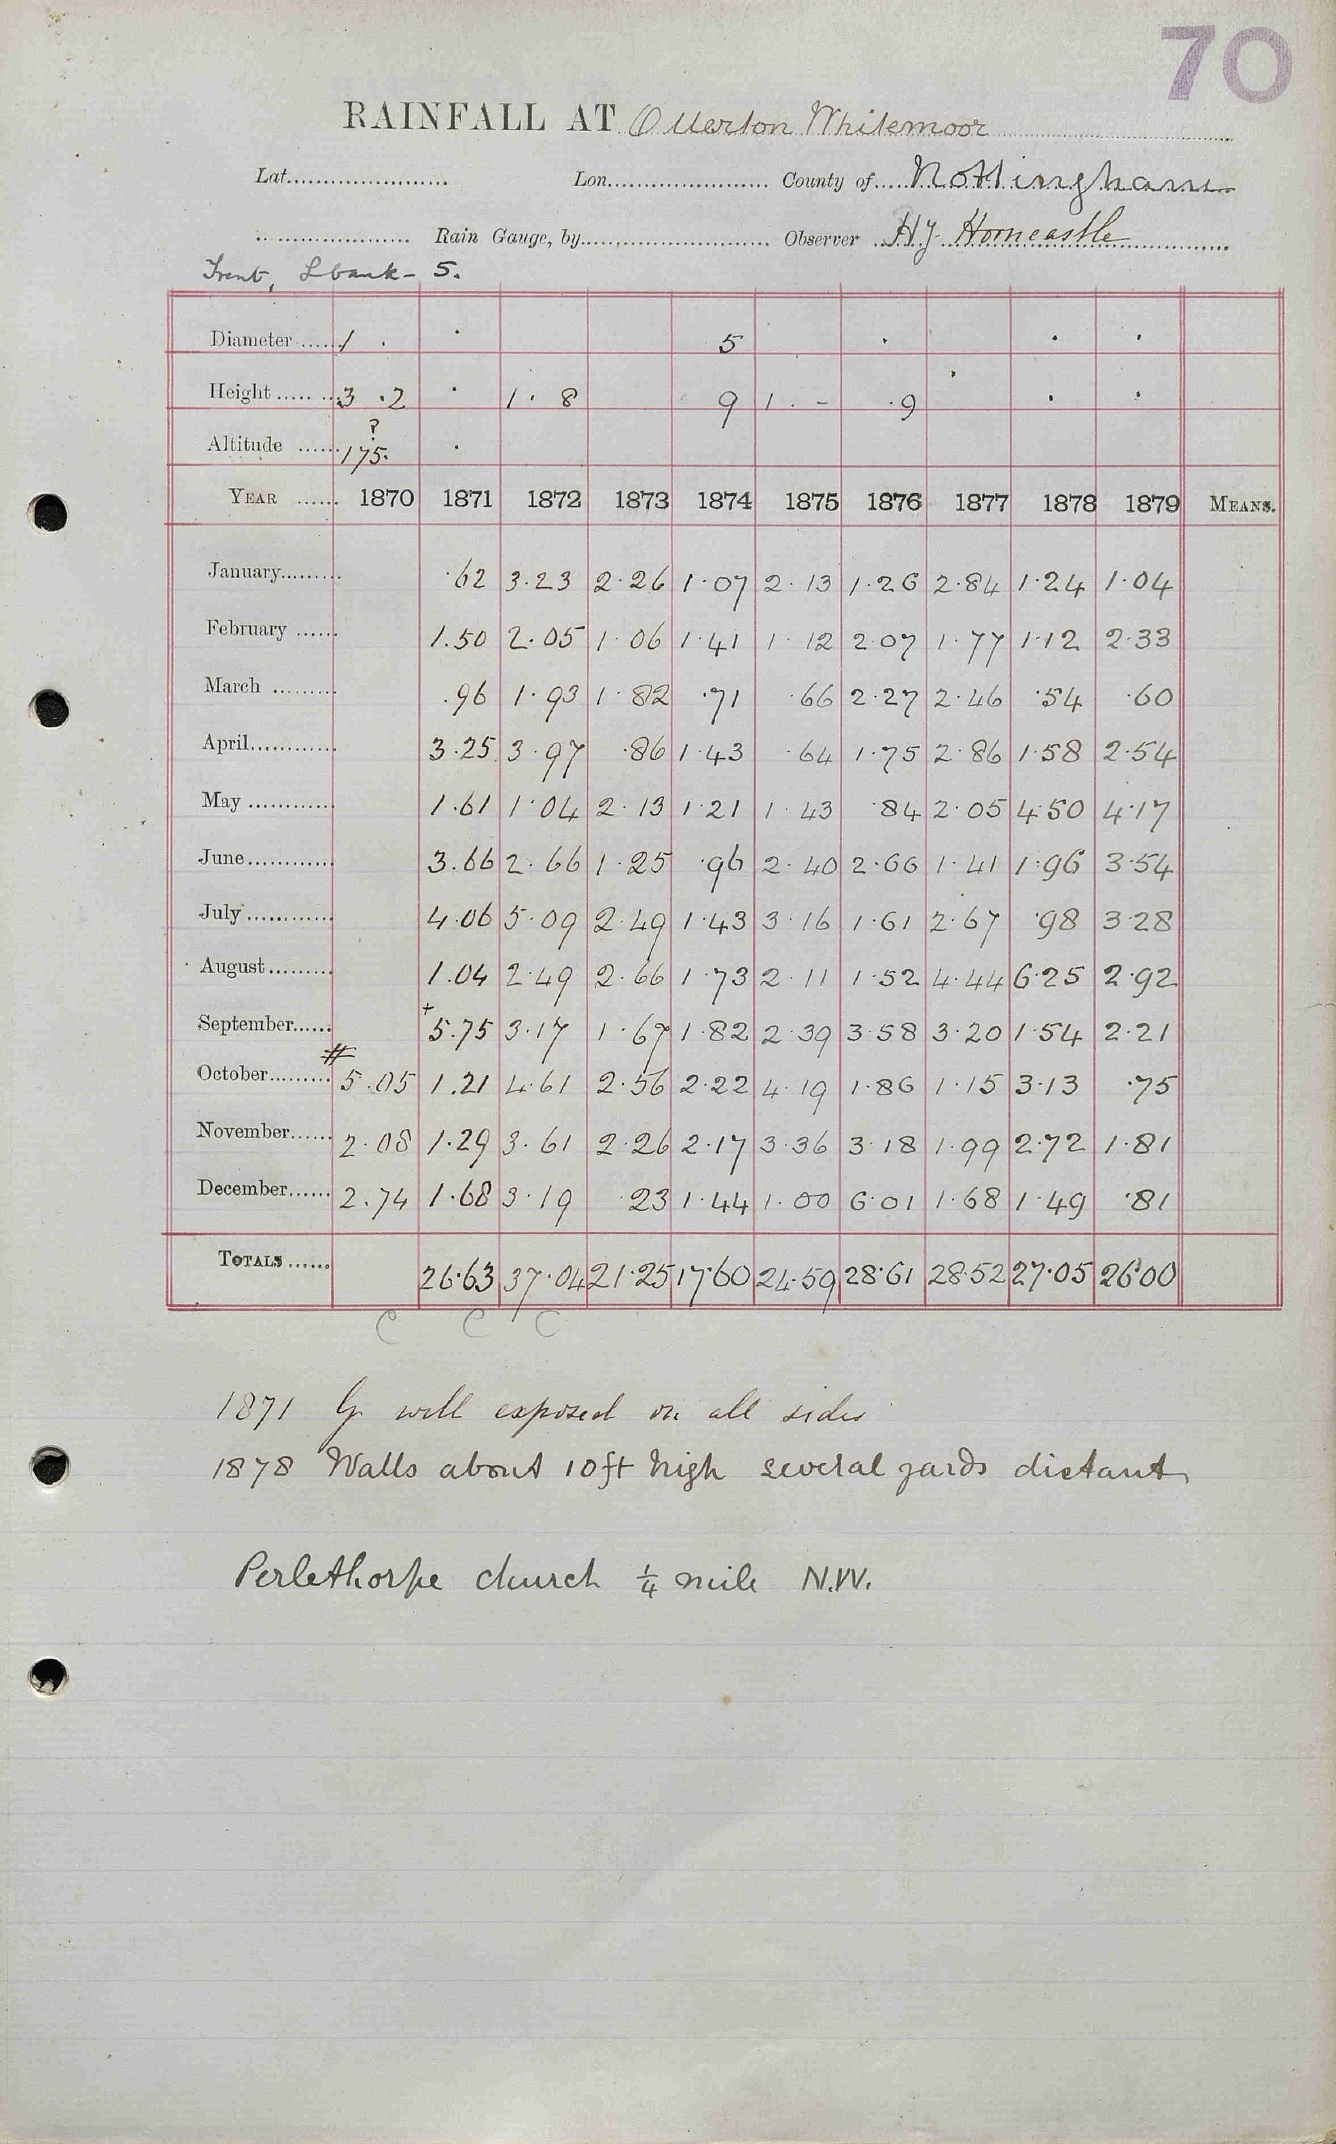 70
RAINFALL AT Ollerton Whitemoor
Lat. Lon. County of Nottingham
Rain Gauge, by Observer Hy Horncastle
Trent, L bank - 5.
Diameter 1 . . 5 . . .
Height 3 .2 . 1 . 8 9 1 . - . 9 . . .
Altitude ? 175. .
YEAR 1870 1871 1872 1873 1874 1875 1876 1877 1878 1879 MEANS.
January .62 3.23 2.26 1.07 2.13 1.26 2.84 1.24 1.04
February 1.50 2.05 1.06 1.41 1.12 2.07 1.77 1.12 2.33
March .96 1.93 1.82 .71 .66 2.27 2.46 .54 .60
April 3.25 3.97 .86 1.43 .64 1.75 2.86 1.58 2.54
May 1.61 1.04 2.13 1.21 1.43 .84 2.05 4.50 4.17
June 3.66 2.66 1.25 .96 2.40 2.66 1.41 1.96 3.54
July 4.06 5.09 2.49 1.43 3.16 1.61 2.67 .98 3.28
August 1.04 2.49 2.66 1.73 2.11 1.52 4.44 6.25 2.92
September + 5.75 3.17 1.67 1.82 2.39 3.58 3.20 1.54 2.21
October # 5.05 1.21 4.61 2.56 2.22 4.19 1.86 1.15 3.13 .75
November 2.08 1.29 3.61 2.26 2.17 3.36 3.18 1.99 2.72 1.81
December 2.74 1.68 3.19 .23 1.44 1.00 6.01 1.68 1.49 .81
TOTALS 26.63 37.04 21.25 17.60 24.59 28.61 28.52 27.05 26.00
C C C
1871 G well exposed on all sides
1878 Walls about 10ft high several yards distant
Perlethorpe church ¼ mile N.W.